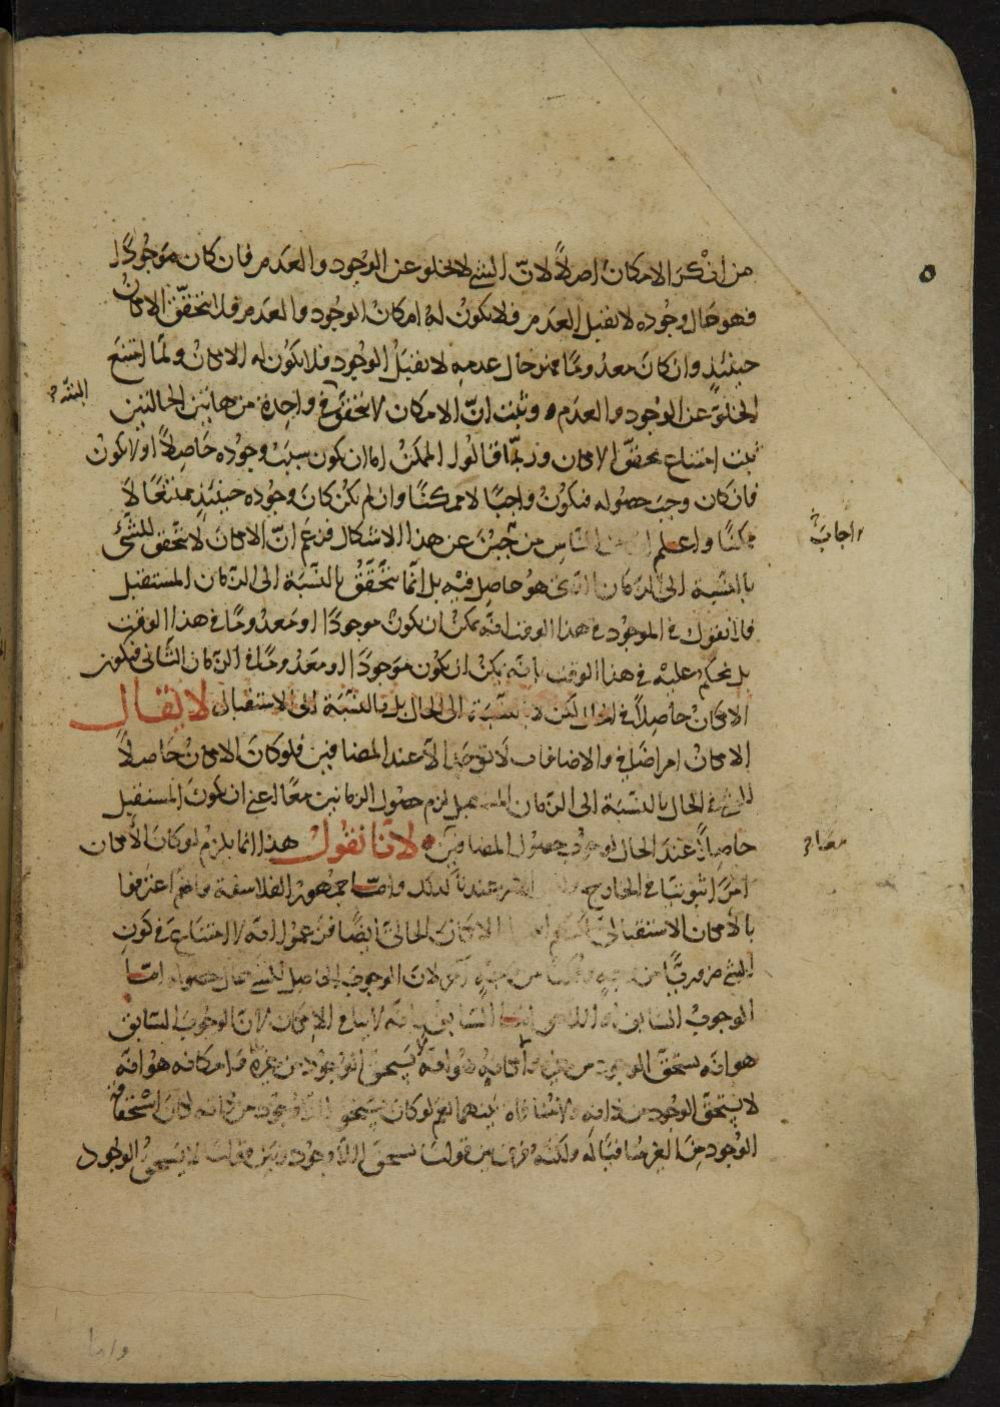 من انكر الامكان اصلاً لانّ الشي لا يخلو عن الوجود والعدم فان كان موجودًا
فهو حال وجوده لا يقبل العدم فلا يكون له امكان الوجود والعدم فلا يتحقّق الامكان
حينئذٍ وان كان معدومًا فهو حال عدمه لا يقبل الوجود فلا يكون له الامكان ولمّا امتنع
الخلوّ عن الوجود والعدم وثبت انّ الامكان لا يتحقّق في واحدة من هاتين الحالتين
البتّة
ثبت امتناع تحقّق الامكان وربّما قالوا الممكن اما ان يكون سبب وجوده حاصلاً او لا يكون
فان كان وجب حصوله فيكون واجبًا لا ممكنًا وان لم يكن كان وجوده حينئذٍ ممتنعًا لا
ممكنًا واعلم ان من الناس من يجيب عن هذا الاشكال فزعم انّ الامكان لا يتحقق للشئ
واجاب
بالنسبة الى الزمان الذي هو حاصل فيه بل انّما يتحقّق بالنّسبة الى الزمان المستقبل
فلا نقول في الموجود في هذا الوقت انّه يمكن ان يكون موجودًا او معدومًا في هذا الوقت
بل نحكم عليه في هذا الوقت بانّه يمكن ان يكون موجودًا او معدومًا في الزمان الثاني فيكون
الامكان حاصلاً في الحال لكن لا بالنسبة الى الحال بل بالنسبة الى الاستقبال لا يقال
الامكان امر اضافي والاضافات لا توجد الا عند المضافين فلو كان الامكان حاصلاً
للشي في الحال بالنسبة الى الزمان المستقبل لزم حصول الزمانين معًا اعني ان يكون المستقبل
حاصلاً عند الحال لوجوب حصول المضافين لانّا نقول هذا انما يلزم لو كان الامكان
معًا
امرًا ثبوتيًا في الخارج وليس الامر عندنا كذلك وامّا جمهور الفلاسفة فانهم اعترفوا
بالامكان الاستقبالي لكنهم الامكان الحالي ايضًا فزعموا انّه لا امتناع في كون
الشي ضروريًّا من وجهٍ وممكنًا من وجهٍ آخر لان الوجوب الحاصل للشي حال حصوله امّا
الوجوب السابق او اللاحق امّا السابق فانّه لا ينافي الامكان لانّ الوجوب السابق
هو انّه يستحقّ الوجود من غيره وامكانه هو انّه
لا يستحق الوجود من ذاته ولا منافاة بينهما نعم لو كان يستحق اللاوجود من ذاته لكان استحقاقه
الوجود من الغير منافيًا له ولكنه فرق بين قولنا يستحق اللاوجود وبين قولنا لا يستحق الوجود
واما